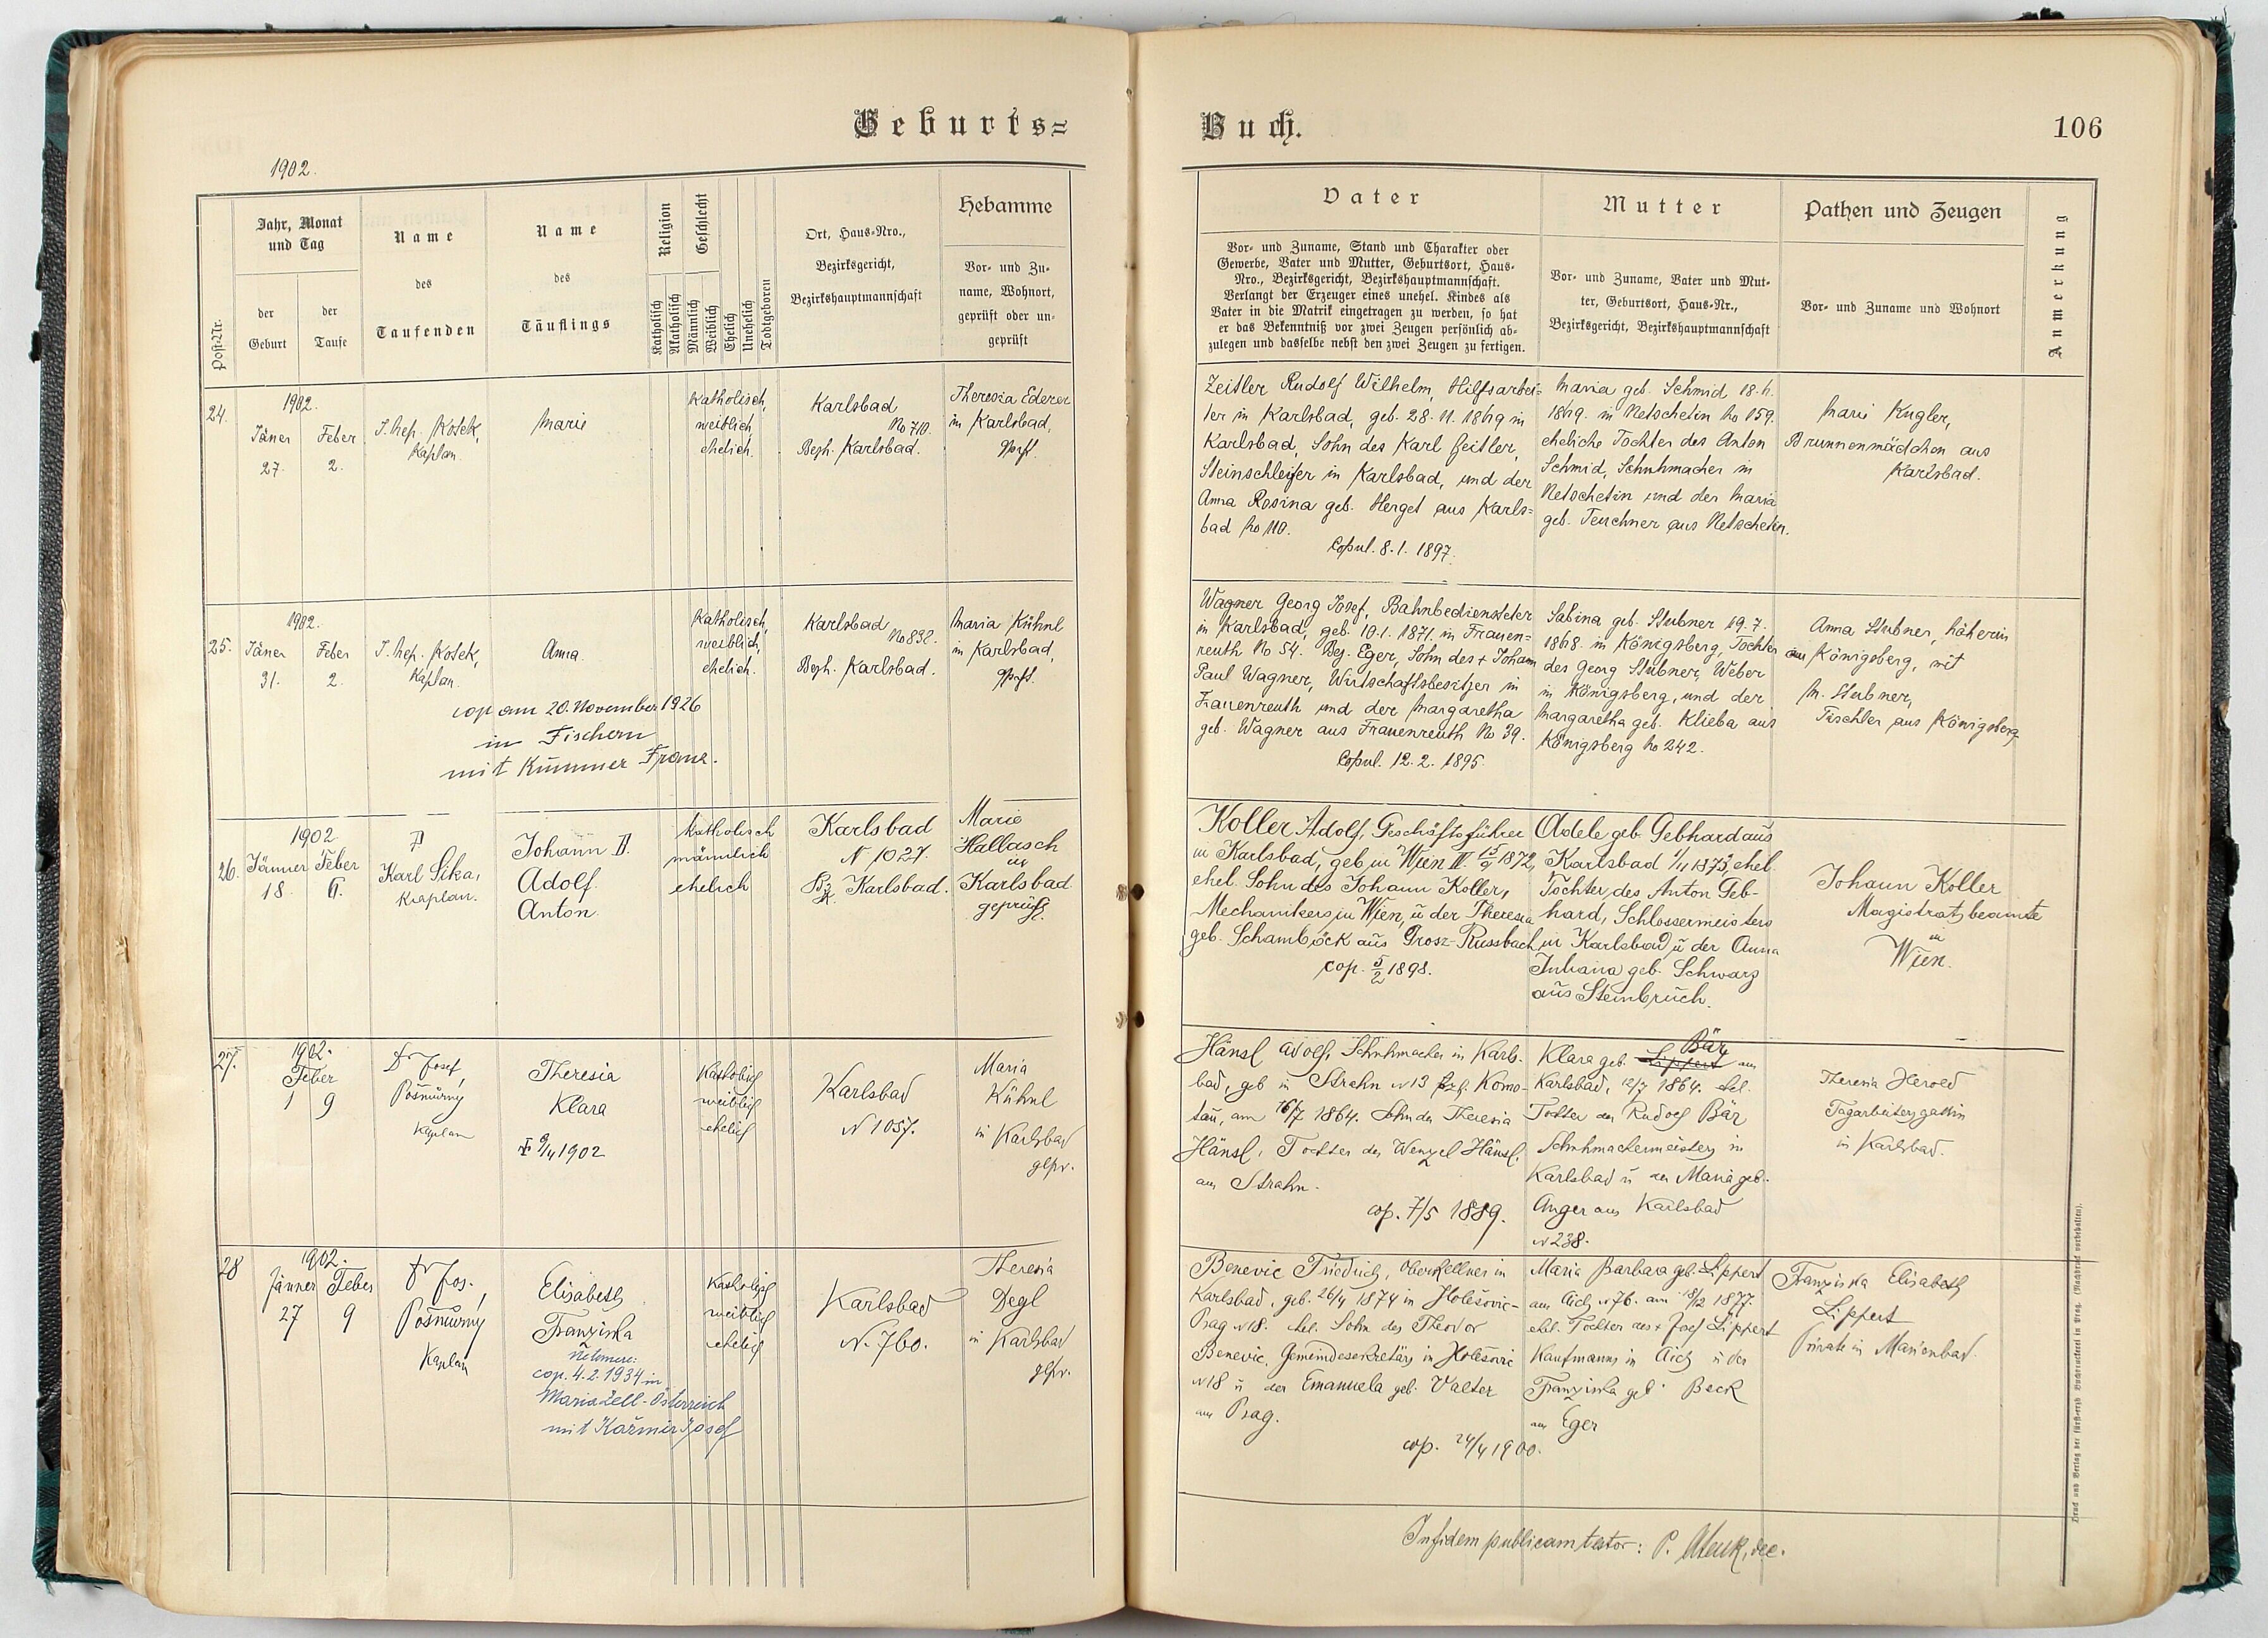 Geburts=
1902.
Post-Nr.
Jahr, Monat
und Tag
der
Geburt
der
Taufe
Name
des
Taufenden
Name
des
Täuflings
Religion
Katholisch
Akatholisch
Geschlecht
Männlich
Weiblich
Ehelich
Unehelich
Todtgeboren
Ort, Haus-Nro.,
Bezirksgericht,
Bezirkshauptmannschaft
Hebamme
Vor- und Zu-
name, Wohnort,
geprüft oder un-
geprüft
24.
1902.
Jäner Feber
27. 2.
J. Nep. Kosek,
Kaplan
Marie
Katholisch,
weiblich
ehelich.
Karlsbad
No 710.
Bezh. Karlsbad.
Theresia Ederer
in Karlsbad,
gepr.
25.
1902.
Jäner Feber
31. 2.
J. Nep. Kosek,
Kaplan.
Anna
cop am 20. November 1926
in Fischern
mit Kummer Franz.
Katholisch,
weiblich,
ehelich.
Karlsbad
No 832.
Bezh. Karlsbad.
Maria Kühnl
in Karlsbad,
gepr.
26.
1902
Jänner Feber
18. 6.
P
Karl Sika,
Kaplan.
Johann B.
Adolf
Anton
katholisch
männlich
ehelich
Karlsbad
N 1027.
Bz Karlsbad.
Marie
Hallasch
in
Karlsbad
geprüft.
27.
1902.
Feber
1 9
Dr Josef
Pošmůrný
Kaplan
Theresia
Klara
9/4 1902
Katholisch
weiblich
ehelich
Karlsbad
N 1057.
Maria
Kühnl
in Karlsbad
gepr.
28
1902.
Jänner Feber
27 9
Dr Jos.
Pošmůrný
Kaplan
Elisabeth
Franziska
cop. 4.2.1934 in
Mariazell-Österreich
mit Kažmir Josef
Katholisch
weiblich
ehelich
Karlsbad
N. 760.
Theresia
Degl
in Karlsbad
gepr.
Buch.
106
Vater
Vor- und Zuname, Stand und Charakter oder
Gewerbe, Vater und Mutter, Geburtsort, Haus-
Nro., Bezirksgericht, Bezirkshauptmannschaft.
Verlangt der Erzeuger eines unehel. Kindes als
Vater in die Matrik eingetragen zu werden, so hat
er das Bekenntniß vor zwei Zeugen persönlich ab-
zulegen und dasselbe nebst den zwei Zeugen zu fertigen.
Mutter
Vor- und Zuname, Vater und Mut-
ter, Geburtsort, Haus-Nr.,
Bezirksgericht, Bezirkshauptmannschaft
Pathen und Zeugen
Vor- und Zuname und Wohnort
Anmerkung
Zeitler Rudolf Wilhelm, Hilfsarbei=
ter in Karlsbad, geb. 28. 11. 1869 in
Karlsbad, Sohn des Karl Zeitler,
Steinschleifer in Karlsbad, und der
Anna Rosina geb. Herget aus Karls=
bad No 110.
Copul. 8. 1. 1897.
Maria geb. Schmid 18. 6.
1869. in Netschetin No 159.
eheliche Tochter des Anton
Schmid, Schuhmacher in
Netschetin und der Maria
geb. Teuchner aus Netschetin.
Marie Kugler,
Brunnenmädchen aus
Karlsbad.
Wagner Georg Josef, Bahnbediensteter
in Karlsbad, geb. 10. 1. 1871. in Frauen=
reuth No 54. Bez. Eger, Sohn des + Johann
Paul Wagner, Wirtschaftsbesitzer in
Frauenreuth und der Margaretha
geb. Wagner aus Frauenreuth No 39.
Copul. 12. 2. 1895.
Sabina geb. Stubner 19. 7.
1868. in Königsberg, Tochter
des Georg Stubner, Weber
in Königsberg, und der
Margaretha geb. Klieba aus
Königsberg No 242.
Anna Stubner, Näherin
aus Königsberg, mit
M. Stubner,
Tischler aus Königsberg
Koller Adolf, Geschäftsführer
in Karlsbad, geb. in Wien IV. 15/9 1872,
ehel. Sohn des Johann Koller,
Mechanikers in Wien, u der Theresia
geb. Schamböck aus Grosz-Russbach
cop. 5/2 1898.
Adele geb. Gebhard aus
Karlsbad 1/11 1873, ehel.
Tochter des Anton Geb-
hard, Schlossermeisters
in Karlsbad u der Anna
Juliana geb. Schwarz
aus Steinbruch.
Johann Koller
Magistratsbeamte
in
Wien.
Hänsl Adolf, Schuhmacher in Karls-
bad, geb in Strahn N 13 Bzh. Komo-
tau, am 16/7 1864. Sohn der Theresia
Hänsl, Tochter des Wenzel Hänsl,
aus Strahn.
cop. 7/5 1889.
Bär
Klara geb. Lippert aus
Karlsbad, 12/7 1864. ehel.
Tochter des Rudolf Bär
Schuhmachermeisters in
Karlsbad u der Maria geb.
Anger aus Karlsbad
N 238.
Theresia Herold
Tagarbeitersgattin
in Karlsbad.
Benevic Friedrich, Oberkellner in
Karlsbad, geb. 26/4 1874 in Holešovic-
Prag N 18. ehel. Sohn des Theodor
Benevic, Gemeindesekretärs in Holešovic
N 18 u der Emanuela geb. Valter
aus Prag.
cop. 24/4 1900.
Maria Barbara geb. Lippert
aus Aich N 76. am 18/12 1877.
ehel. Tochter des + Josef Lippert
Kaufmanns in Aich u der
Franziska geb. Beck
aus Eger
Franziska Elisabeth
Lippert
Private in Marienbad.
In fidem publicam testor: P.
Druck und Verlag der fürst-erzb. Buchdruckerei in Prag. (Nachdruck vorbehalten).